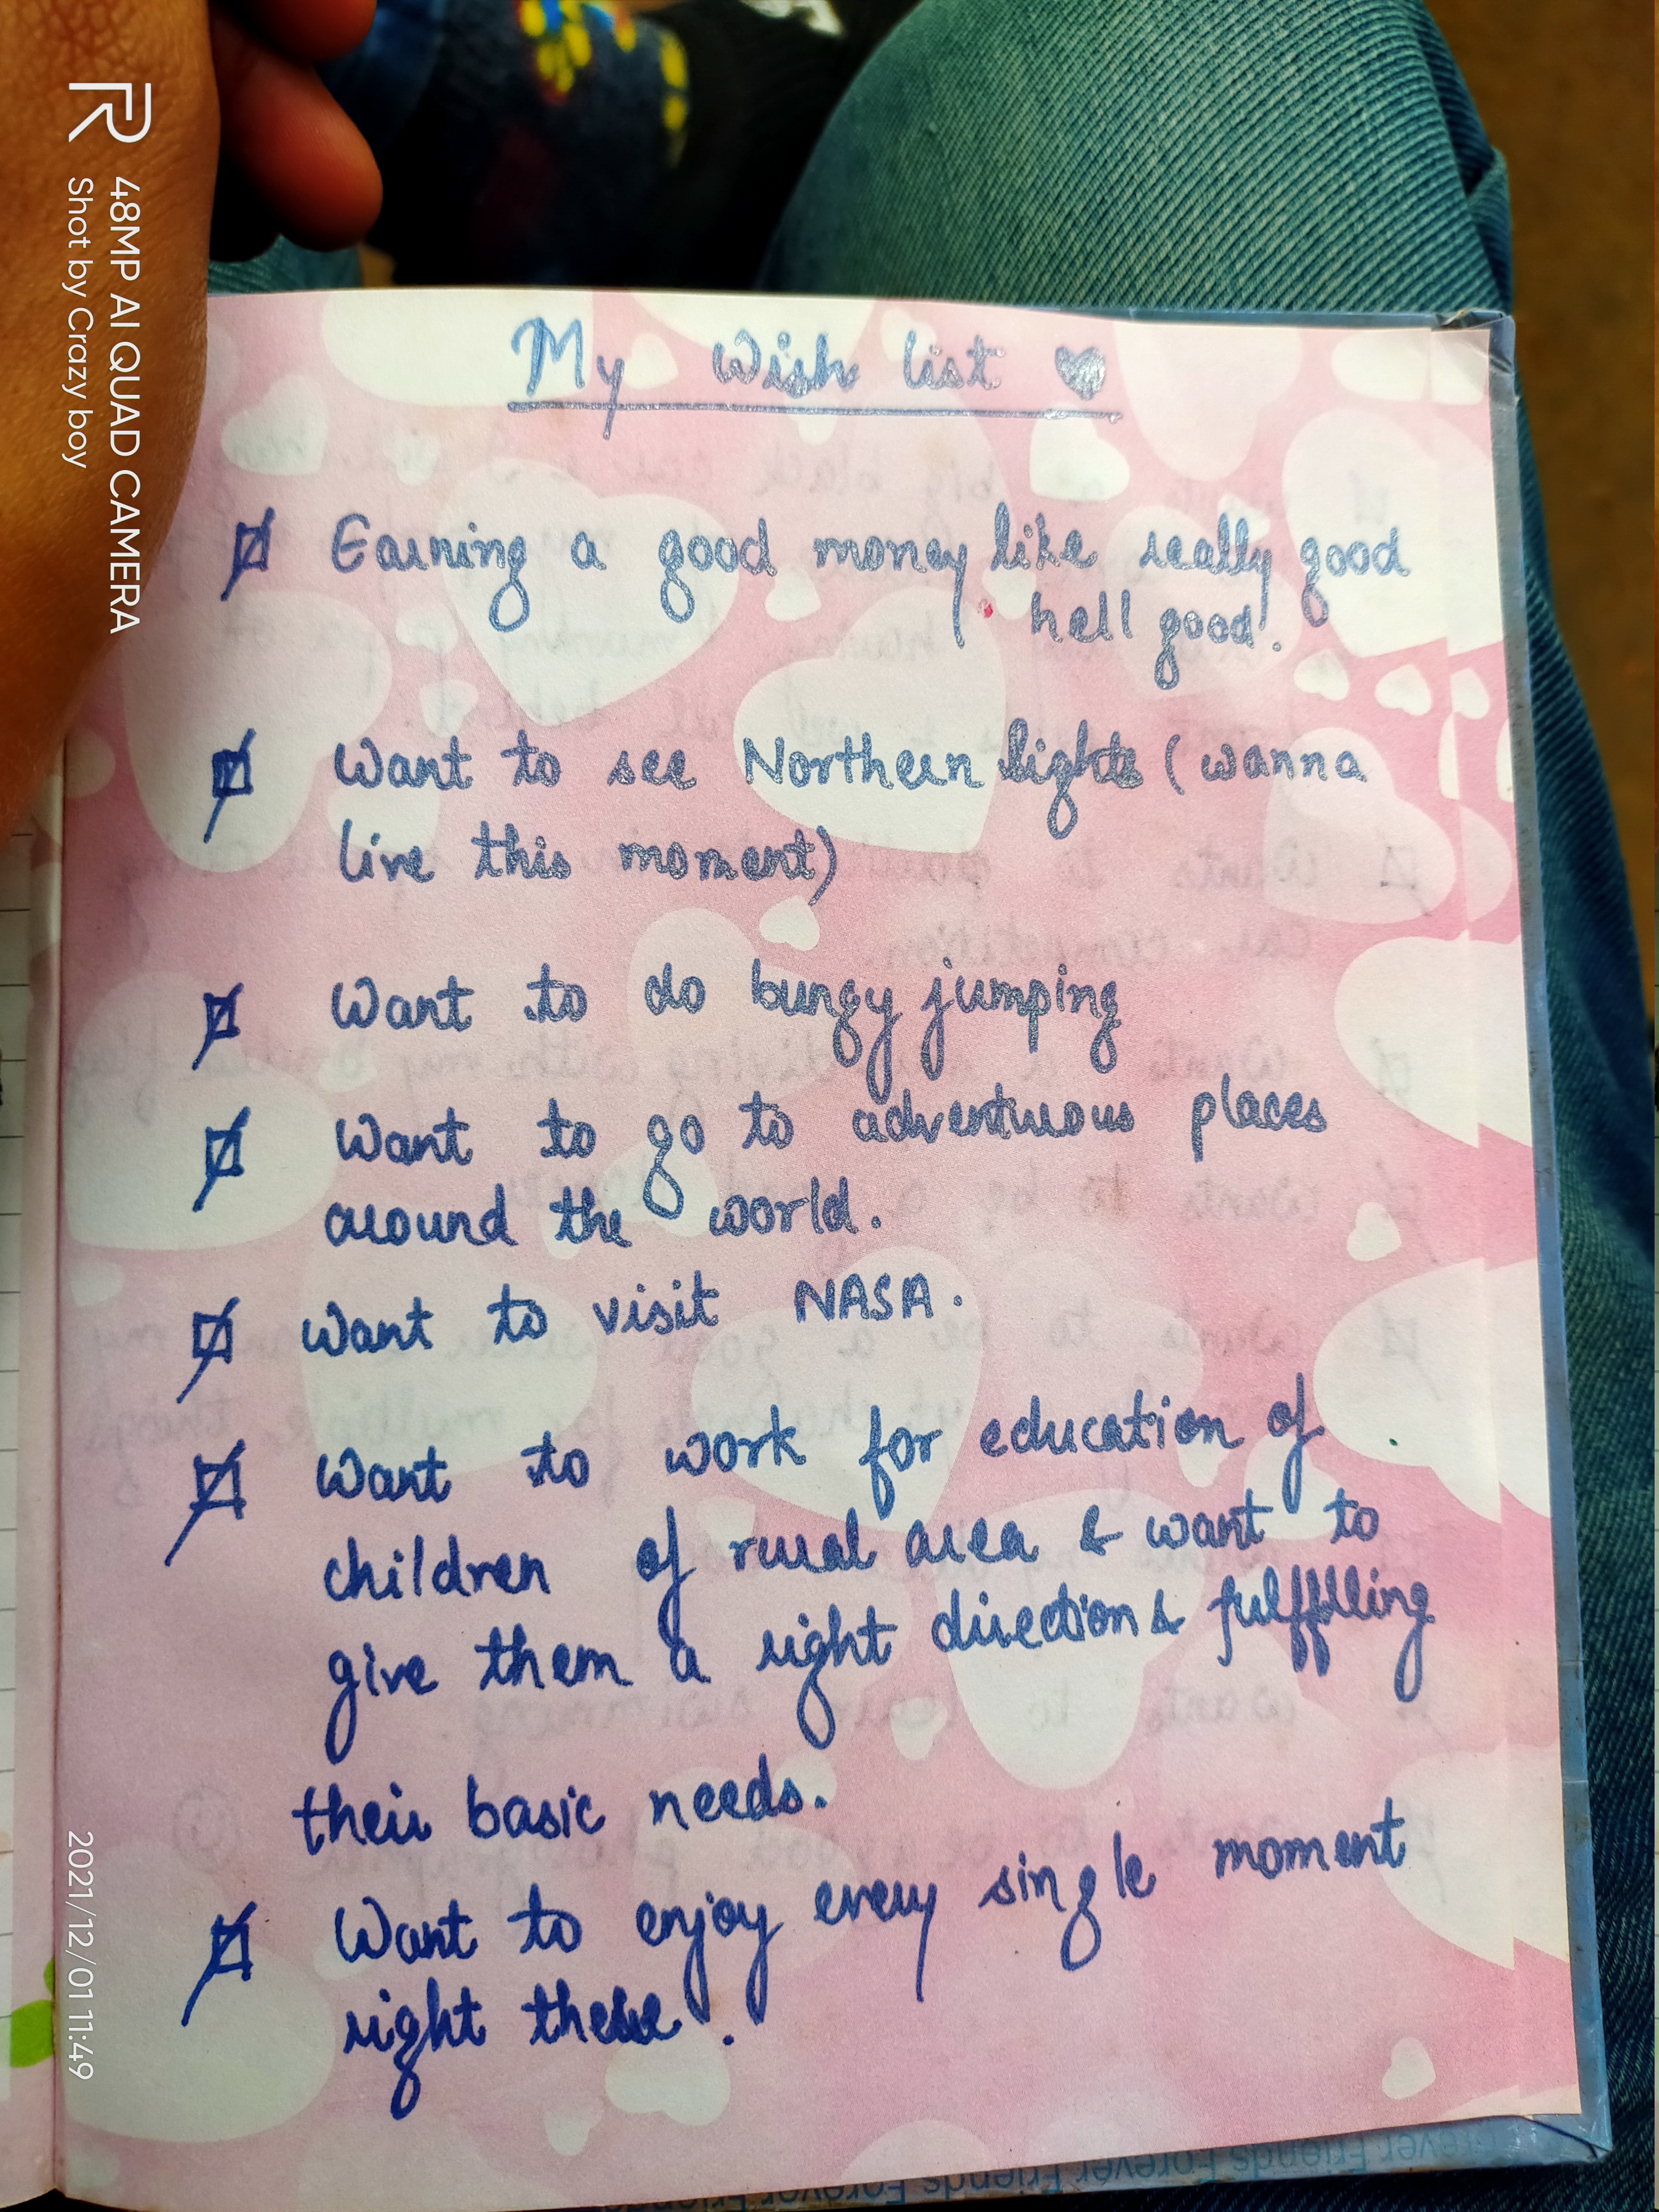 My Wish list ♥
Earning a good money like really good
hell good.
Want to see Northern lights (wanna
live this moment)
Want to do bungy jumping
Want to go to adventuous places
around the world.
Want to visit NASA.
Want to work for education of
children of rural area & want to
give them a right direction & fulffilling
their basic needs.
Want to enjoy every single moment
right there.
R 48MP AI QUAD CAMERA
Shot by Crazy boy
2021/12/01 11:49
Forever Friends Forever Friends Forever Friends